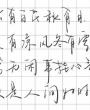 有百花秋有月
有凉风冬有雪
闲事挂心
人间好时